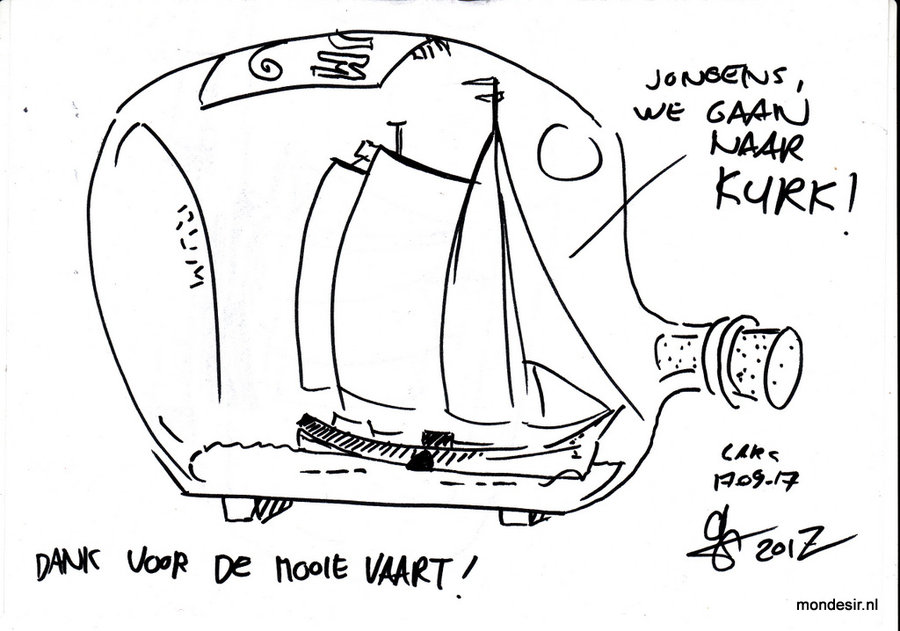 JONGENS,
WE GAAN
NAAR
KURK!
RUM
LARS
17.09-17
2017
DANK VOOR DE MOOIE VAART!
mondesir.nl